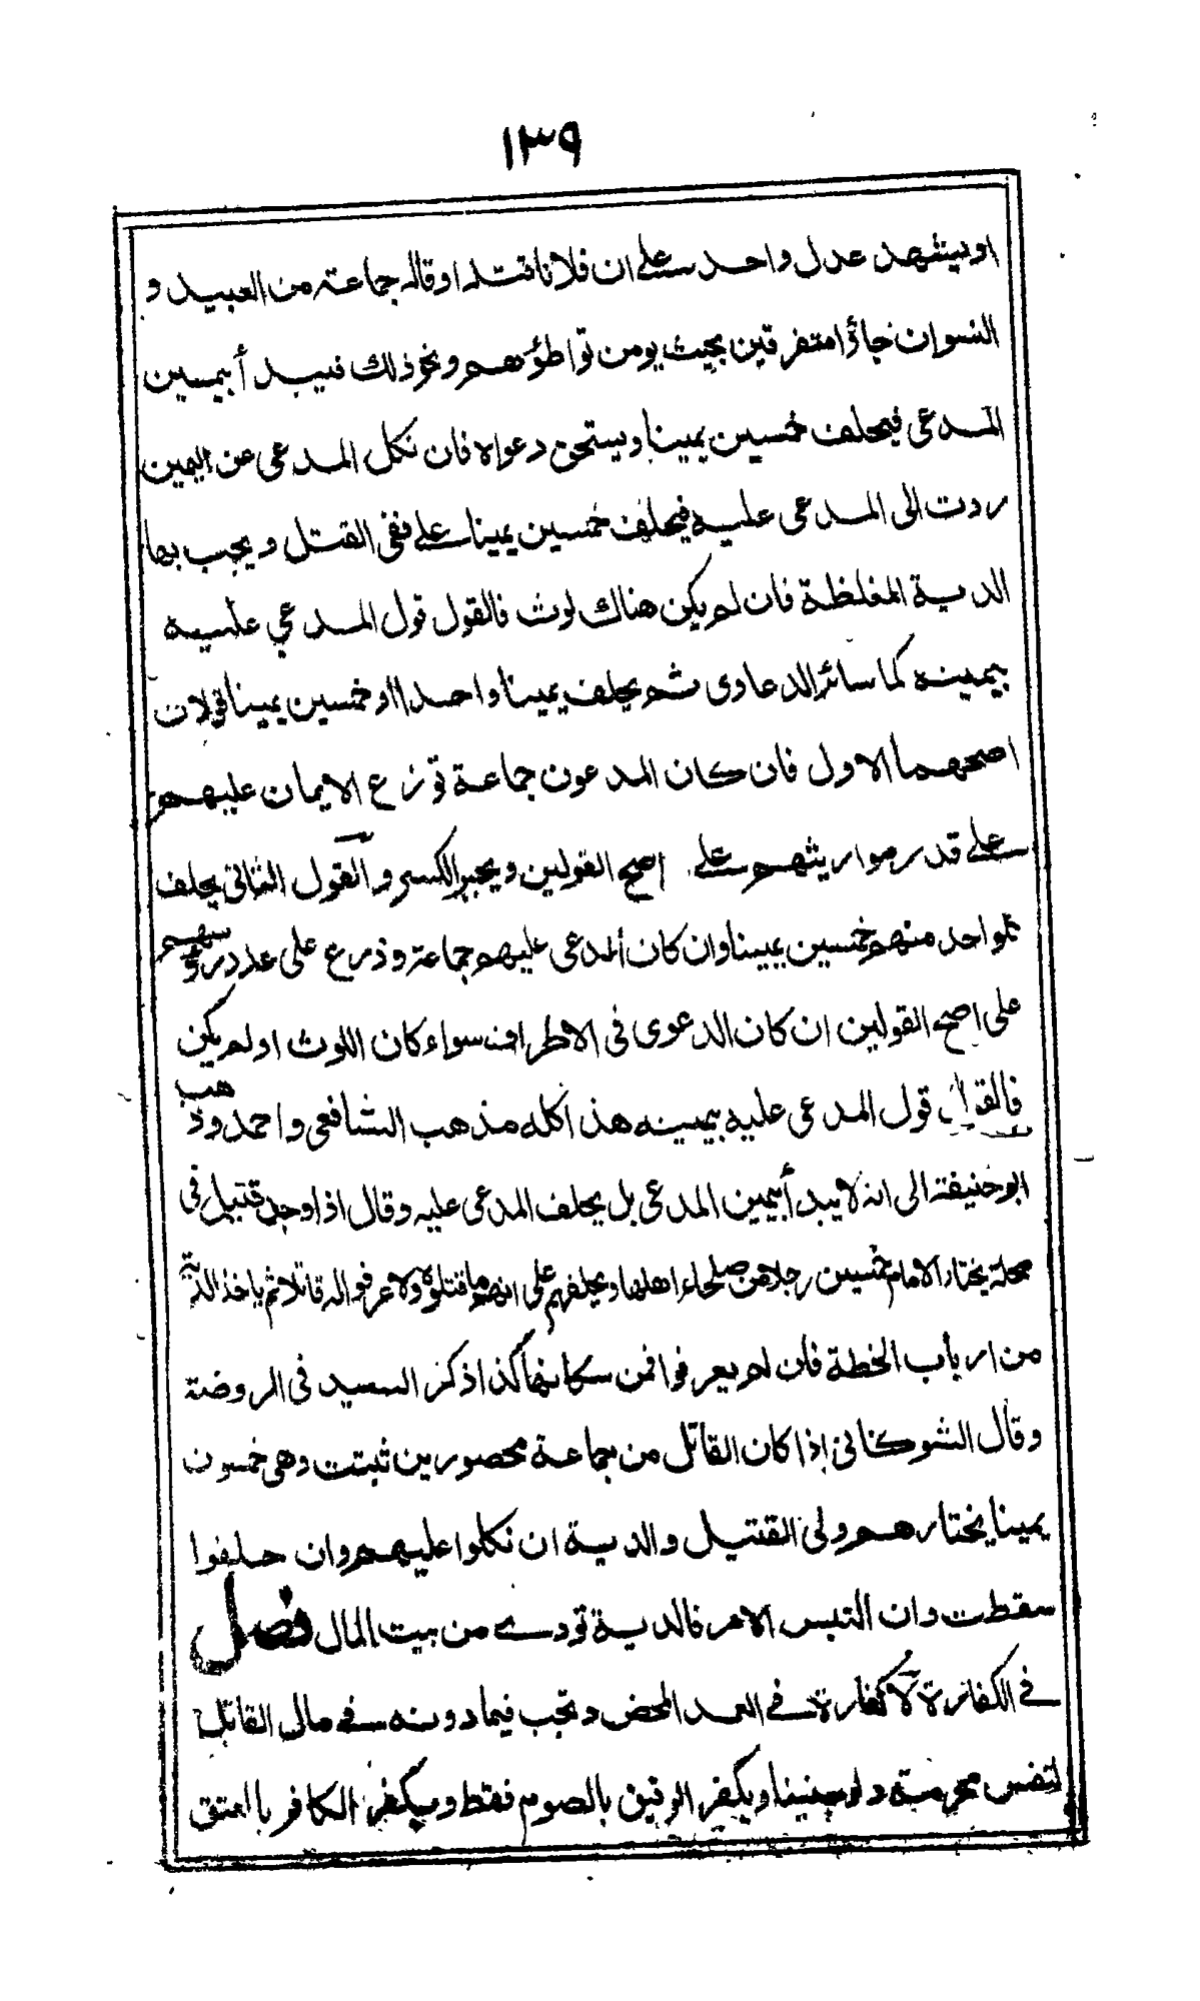 ١٣٩
او يشهد عدل واحد على ان فلانا قتله او قاله جماعة من العبيد و
النسوان جاؤا متفرقين بحيث يومن تواطؤهم ونحو ذلك فيبدأ بيمين
المدعى فيحلف خمسين يمينا ويستحق دعواه فان نكل المدعى عن اليمين
ردت الى المدعى عليه فيحلف خمسين يمينا على نفى القتل ويجب بها
الدية المغلظة فان لم يكن هناك لوث فالقول قول المدعي عليه
بيمينه كما سائر الدعاوى ثم يحلف يمينا واحدا او خمسين يمينا قولان
اصحهما الاول فان كان المدعون جماعة توزع الايمان عليهم
على قدر مواريثهم على اصح القولين ويجبر الكسر والقول الثانى يحلف
كلواحد منهم خمسين يمينا وان كان المدعى عليهم جماعة وذرع على عدد رؤسهم
على اصح القولين ان كان الدعوى فى الاطراف سواء كان اللوث او لم يكن
فالقول قول المدعى عليه بيمينه هذا كله مذهب الشافعى واحمد وذهب
ابو حنيفة الى انه لا يبدأ بيمين المدعى بل يحلف المدعى عليه وقال اذا وجد قتيل فى
محلة يختار الامام خمسين رجلا من صلحاء اهلها ويحلفهم على انهم ما قتلوه ولا عرفوا له قاتلا ثم ياخذ الدية
من ارباب الخطة فان لم يعرفوا فمن سكانها كذا ذكر السيد فى الروضة
وقال الشوكانى إذا كان القاتل من جماعة محصورين ثبتت وهى خمسون
يمينا يختارهم ولى القتيل والدية ان نكلوا عليهم وان حلفوا
سقطت وان التبس الامر فالدية تودے من بيت المال فصل
فے الكفارة لا كفارة فے العمد المحض وتجب فيما دونه فے مال القاتل
لنفس محرمة ولو جنينا ويكفر الرقيق بالصوم فقط ويكفر الكافر بالعتق